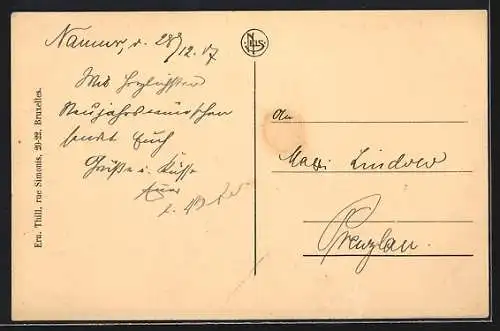 Namur, d. 28/12. 17
Mit herzlichsten
Neujahrswünschen
sendet Euch
Grüße u. Küsse
Euer
An
Maxi Lindow
Prenzlau.
Ern. Thill, rue Simonis, 20-22, Bruxelles.
NELS